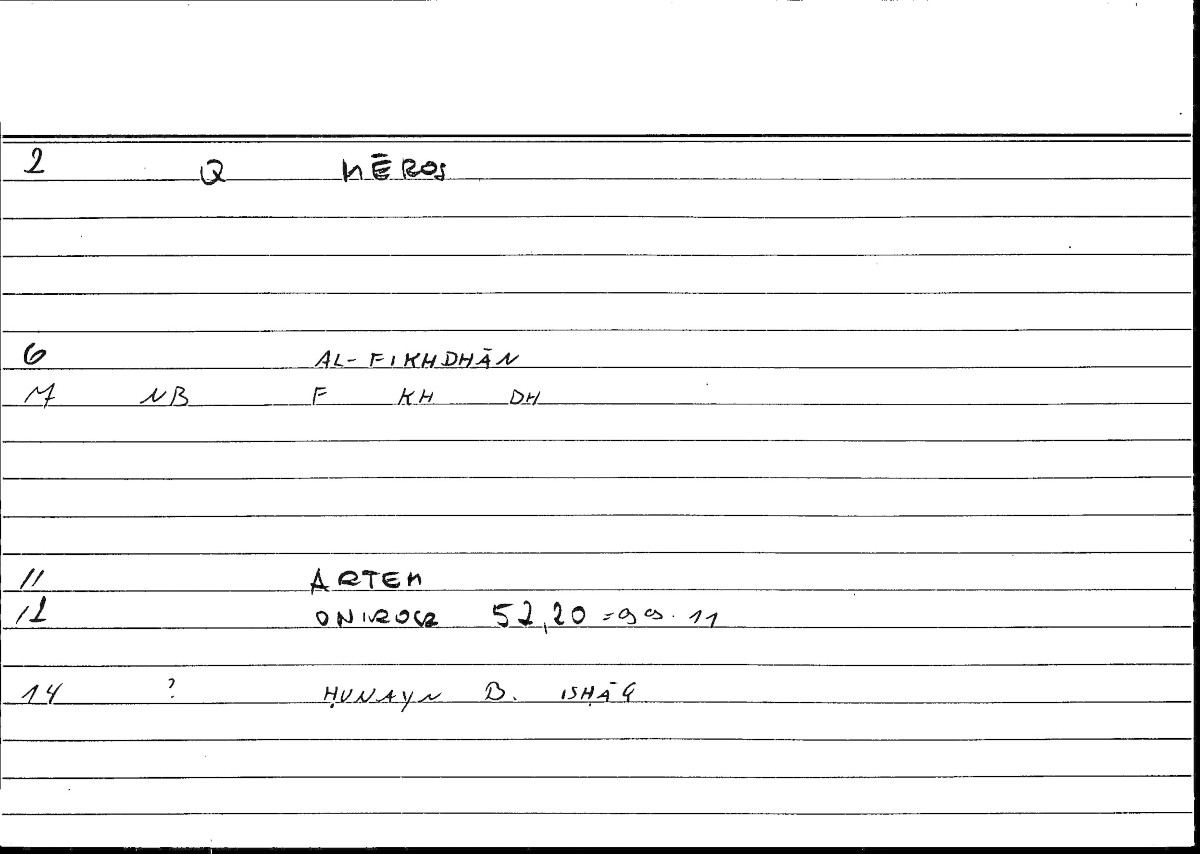 2 Q MĒROS
6 AL-FIKHDHĀN
7 NB F KH DH
11 ARTEM
12 ONIROCR 52,20 = 99.11
14 ? ḤUNAYN B. ISḤĀQ